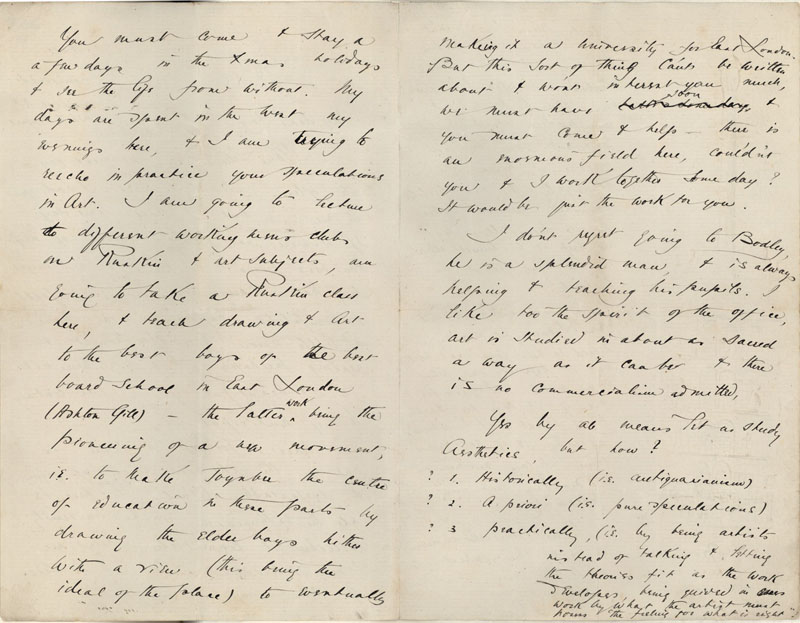 You must come & stay a
a few days in the Xmas holidays
& see the life from without. My
days are spent in the West my
evenings here, & I am trying to
reecho in practice your speculations
in Art. I am going to lecture
to different working men's clubs
on Ruskin & art subjects, am
going to take a Ruskin class
here, & teach drawing & Art
to the best boys of the best
board school in East London
(Ashton Gill) – the latter work being the
pioneering of a new movement,
i.e. to make Toynbee the centre
of education in these parts by
drawing the elder boys hither
with a view (this being the
ideal of the place) to eventually
making it a University for East London.
But this sort of thing can't be written
about & won't interest you much,
we must have soon &
you must come & help – there is
an enormous field here, couldn't
you & I work together some day?
It would be just the work for you.
I don't regret going to Bodley,
he is a splendid man, & is always
helping & teaching his pupils. I
like too the spirit of the office,
art is studied in about as sacred
a way as it can be & there
is no commercialism admitted.
Yes by all means let us study
Aesthetics, but how?
? 1. Historically (i.e. antiquarianism)
? 2. A priori (i.e. pure speculations)
? 3 practically, (i.e. by being artists
instead of talking & letting
the theories fit as the work
developes, being guided in our
work by what the artist must
know the feeling for what is right